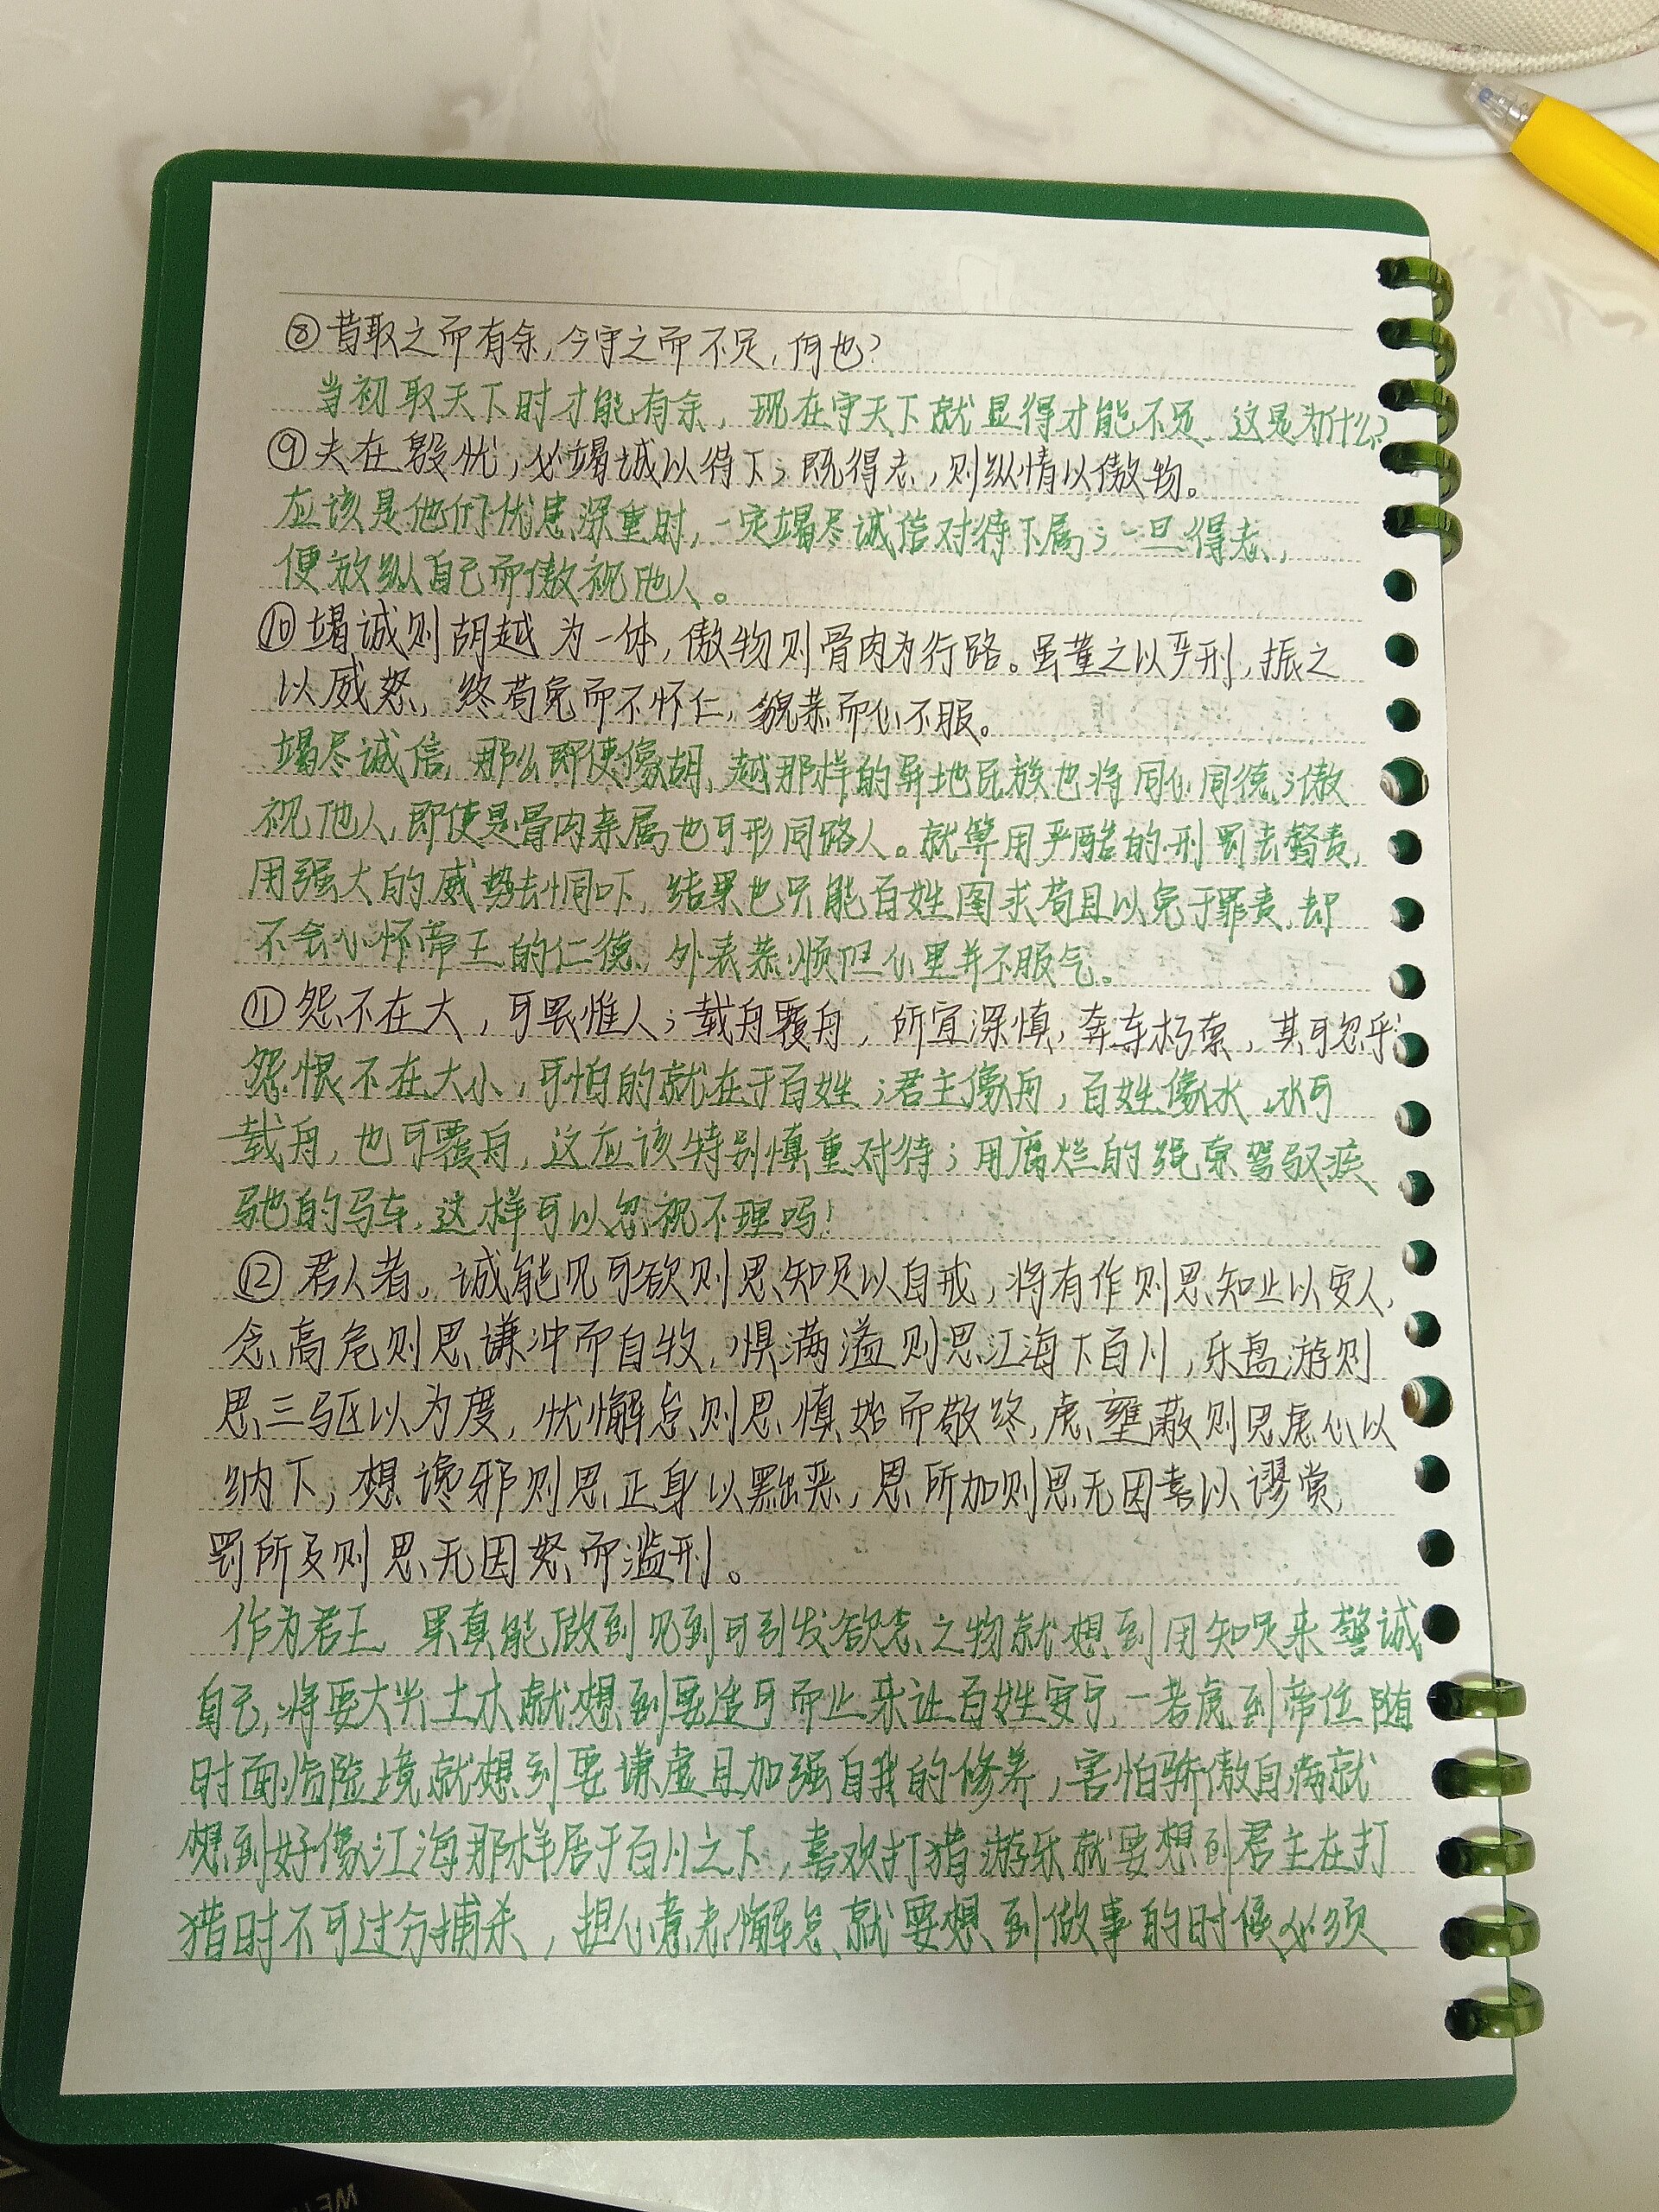 ⑧昔取之而有余,今守之而不足,何也?
当初取天下时才能有余,现在守天下就显得才能不足,这是为什么?
⑨夫在殷忧,必竭诚以待下;既得志,则纵情以傲物。
应该是他们忧患深重时,一定竭尽诚信对待下属;一旦得志,
便放纵自己而傲视他人。
⑩竭诚则胡越为一体,傲物则骨肉为行路。虽董之以严刑,振之
以威怒,终苟免而不怀仁,貌恭而心不服。
竭尽诚信,那么即使像胡、越那样的异地民族也将同心同德;傲
视他人,即使是骨肉亲属也可形同路人。就算用严酷的刑罚去督责,
用强大的威势去恫吓,结果也只能百姓图求苟且以免于罪责,却
不会心怀帝王的仁德,外表恭顺但心里并不服气。
⑪怨不在大,可畏惟人;载舟覆舟,所宜深慎,奔车朽索,其可忽乎?
怨恨不在大小,可怕的就在于百姓;君主像舟,百姓像水,水可
载舟,也可覆舟,这应该特别慎重对待;用腐烂的绳索驾驭疾
驰的马车,这样可以忽视不理吗!
⑫君人者,诚能见可欲则思知足以自戒,将有作则思知止以安人,
念高危则思谦冲而自牧,惧满溢则思江海下百川,乐盘游则
思三驱以为度,忧懈怠则思慎始而敬终,虑壅蔽则思虚心以
纳下,想谗邪则思正身以黜恶,恩所加则思无因喜以谬赏,
罚所及则思无因怒而滥刑。
作为君王 果真能做到见到可引发欲念之物就想到用知足来警诫
自己,将要大兴土木就想到要适可而止来让百姓安宁,一考虑到帝位随
时面临险境就想到要谦虚且加强自我的修养,害怕骄傲自满就
想到好像江海那样居于百川之下,喜欢打猎游乐就要想到君主在打
猎时不可过分捕杀,担心意志懈怠就要想到做事的时候必须